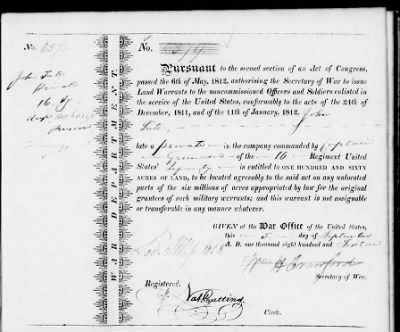 No. 6579
John Tute
Private
16. Inf
No. 6579
Pursuant to the second section of an Act of Congress,
passed the 6th of May, 1812, authorising the Secretary of War to issue
Land Warrants to the noncommissioned Officers and Soldiers enlisted
in the service of the United States, conformably to the acts of the 24th of
December, 1811, and of the 11th of January, 1812, John
Tute,
late a private in the company commanded by Captain
of the 16 Regiment United
States' Infantry is entitled to ONE HUNDRED AND SIXTY
ACRES OF LAND, to be located agreeably to the said act on any unlocated
parts of the six millions of acres appropriated by law for the original
grantees of such military warrants; and this warrant is not assignable
or transferable in any manner whatever.
GIVEN at the War Office of the United States,
this day of September
A. D. one thousand eight hundred and Sixteen
Wm H Crawford
Secretary of War.
Registered.
Nat Cutting
Clerk.
WAR DEPARTMENT